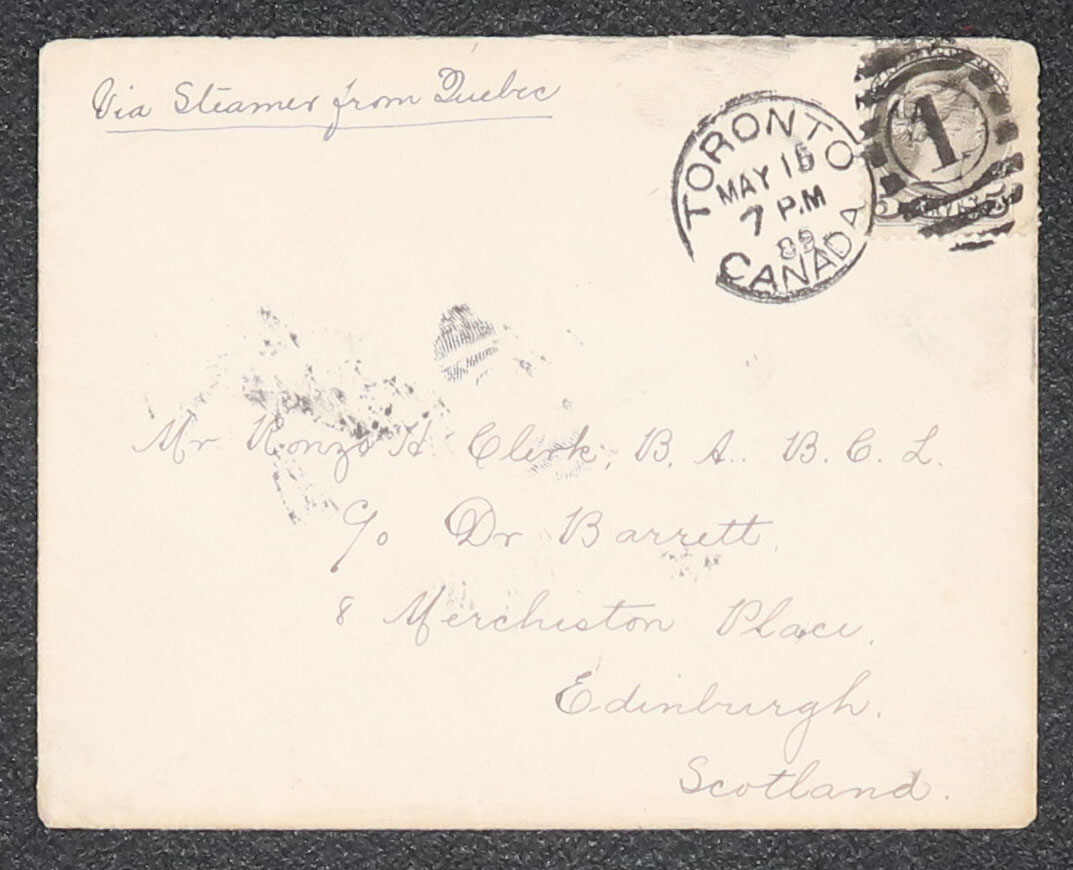 Via Steamer from Quebec
TORONTO
MAY 15
7 P.M
89
CANADA
1
5 CENTS 5
Mr Ronzo H. Clerk, B. A. B. C. L.
c/o Dr Barrett
8 Merchiston Place.
Edinburgh.
Scotland.